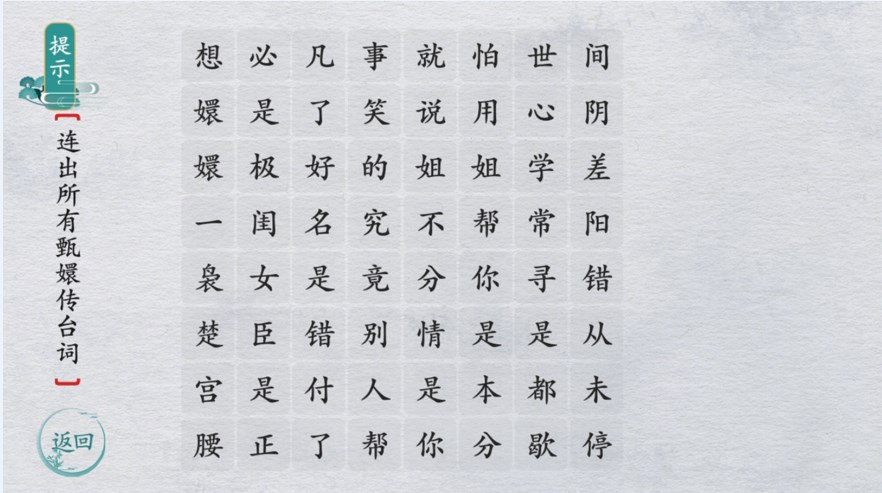 提示
【连出所有甄嬛传台词】
返回
想必凡事就怕世间
嬛是了笑说用心阴
嬛极好的姐姐学差
一闺名究不帮常阳
袅女是竟分你寻错
楚臣错别情是是从
宫是付人是本都未
腰正了帮你分歇停